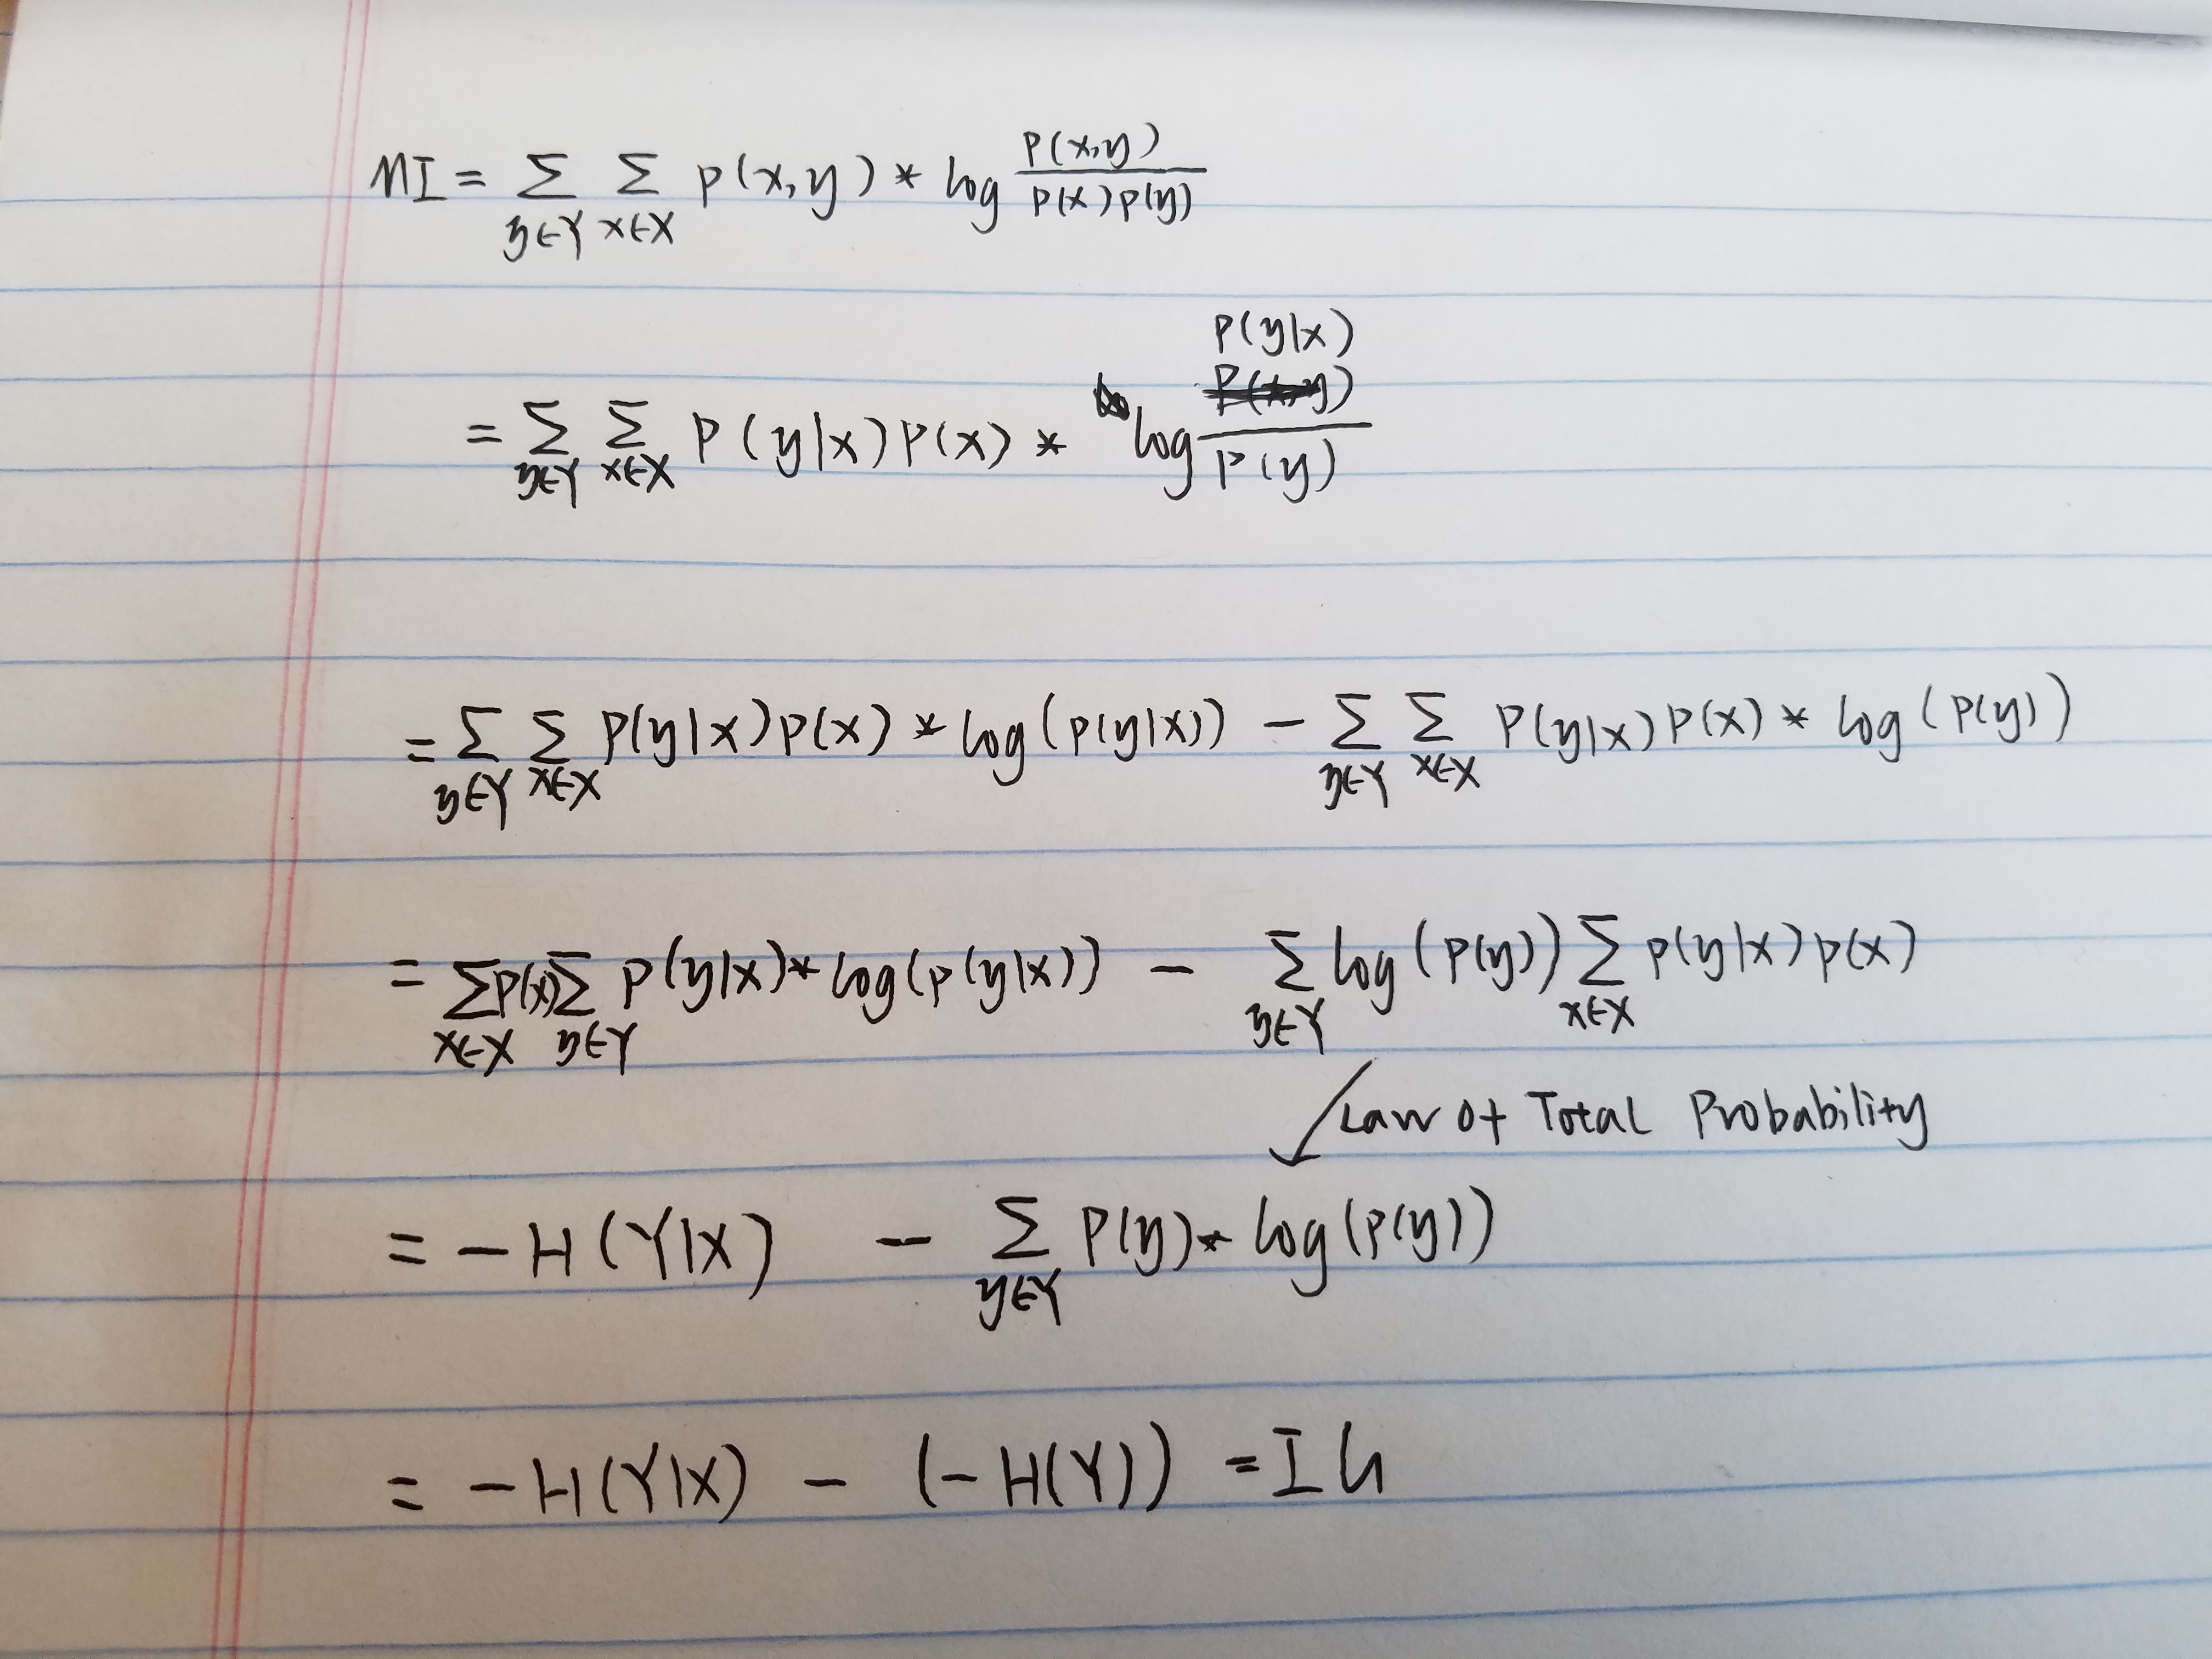 MI = Σ_{y∈Y} Σ_{x∈X} p(x,y) * log P(x,y) / P(x)p(y)
= Σ_{y∈Y} Σ_{x∈X} P(y|x)P(x) * log P(y|x) / P(y)
= Σ_{y∈Y} Σ_{x∈X} P(y|x)p(x) * log(p(y|x)) − Σ_{y∈Y} Σ_{x∈X} P(y|x)P(x) * log(P(y))
= Σ_{x∈X} P(x) Σ_{y∈Y} P(y|x) * log(p(y|x)) − Σ_{y∈Y} log(P(y)) Σ_{x∈X} p(y|x)p(x)
Law of Total Probability
= −H(Y|X) − Σ_{y∈Y} P(y) * log(p(y))
= −H(Y|X) − (−H(Y)) = IG